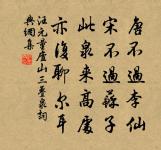 唐不過李仙
宋不過蘇子
此泉来高處
亦復聊尔耳
汪元量廬山三疊泉詞
典網集